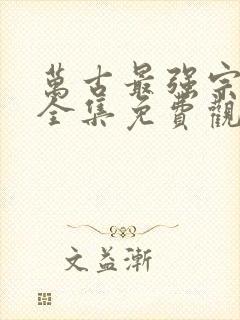 萬古最强宗
全集免費觀
文益漸